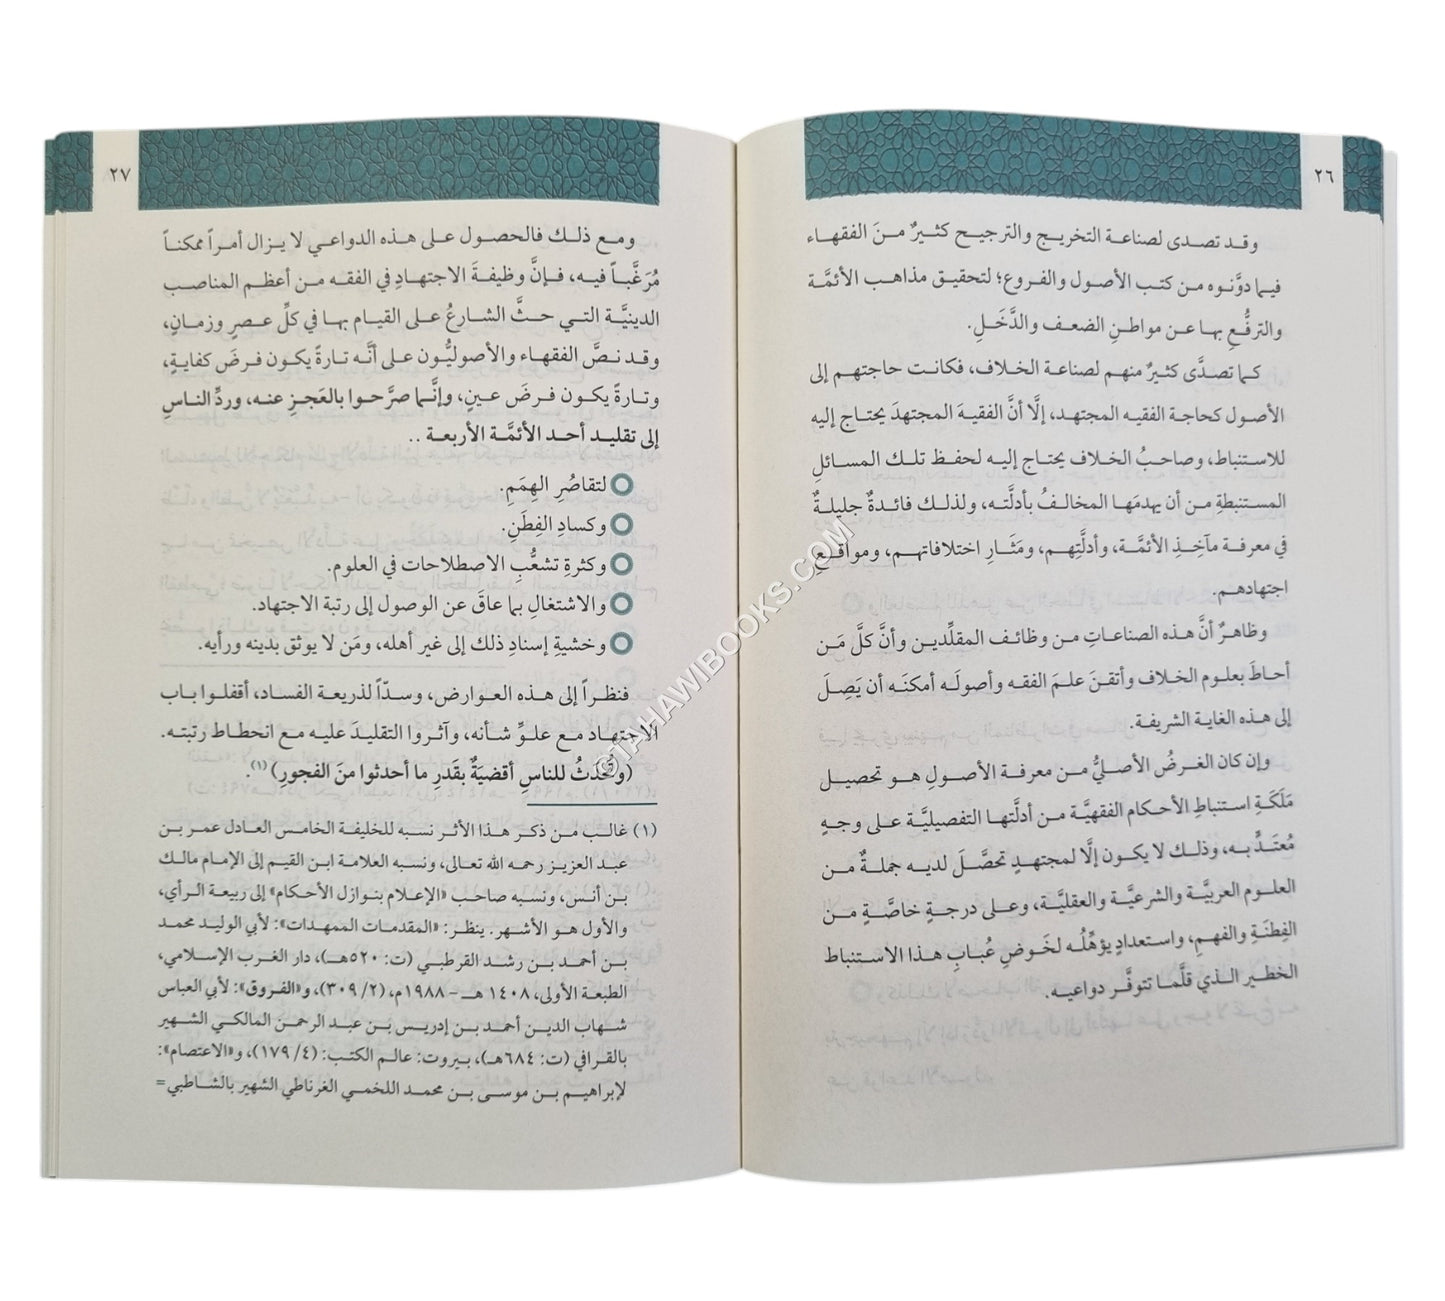 ٢٦
وقد تصدى لصناعة التخريج والترجيح كثيرٌ منَ الفقهاء
فيما دوَّنوه من كتب الأصول والفروع؛ لتحقيق مذاهب الأئمَّة
والترفُّعِ بها عن مواطنِ الضعف والدَّخَلِ.
كما تصدَّى كثيرٌ منهم لصناعة الخلاف، فكانت حاجتهم إلى
الأصول كحاجة الفقيه المجتهد، إلَّا أنَّ الفقيهَ المجتهدَ يحتاج إليه
للاستنباط، وصاحبُ الخلاف يحتاج إليه لحفظ تلك المسائلِ
المستنبطةِ من أن يهدمَها المخالفُ بأدلَّته، ولذلك فائدةٌ جليلةٌ
في معرفة مآخِذِ الأئمَّة، وأدلَّتِهم، ومَثَارِ اختلافاتهم، ومواقعِ
اجتهادهم.
وظاهرٌ أنَّ هذه الصناعاتِ من وظائف المقلِّدين وأنَّ كلَّ مَن
أحاطَ بعلوم الخلاف وأتقنَ علمَ الفقه وأصولَه أمكنَه أن يَصِلَ
إلى هذه الغاية الشريفة.
وإن كان الغرضُ الأصليُّ من معرفة الأصولِ هو تحصيل
مَلَكَةِ استنباطِ الأحكام الفقهيَّة من أدلَّتها التفصيليَّة على وجهٍ
مُعتَدٍّ به، وذلك لا يكون إلَّا لمجتهدٍ تحصَّلَ لديه جملةٌ من
العلوم العربيَّة والشرعيَّة والعقليَّة، وعلى درجةٍ خاصَّةٍ من
الفِطنَةِ والفهمِ، واستعدادٍ يؤهِّلُه لخَوضِ عُبابِ هذا الاستنباط
الخطير الذي قلَّما تتوفَّر دواعيه.
٢٧
ومع ذلك فالحصول على هذه الدواعي لا يزال أمراً ممكناً
مُرَغَّباً فيه، فإنَّ وظيفةَ الاجتهادِ في الفقه من أعظم المناصب
الدينيَّة التي حثَّ الشارعُ على القيام بها في كلِّ عصرٍ وزمانٍ،
وقد نصَّ الفقهاء والأصوليُّون على أنَّه تارةً يكون فرضَ كفايةٍ،
وتارةً يكون فرضَ عينٍ، وإنَّما صرَّحوا بالعَجزِ عنه، وردِّ الناسِ
إلى تقليد أحد الأئمَّة الأربعة ..
لتقاصُرِ الهِمَمِ.
وكسادِ الفِطَنِ.
وكثرةِ تشعُّبِ الاصطلاحات في العلوم.
والاشتغالِ بما عاقَ عن الوصول إلى رتبة الاجتهاد.
وخشيةِ إسنادِ ذلك إلى غير أهله، ومَن لا يوثق بدينه ورأيه.
فنظراً إلى هذه العوارض، وسدّاً لذريعة الفساد، أقفلوا باب
الاجتهاد مع علوِّ شأنه، وآثروا التقليدَ عليه مع انحطاط رتبته.
(وتُحدثُ للناسِ أقضيَةٌ بقَدرِ ما أحدثوا منَ الفجورِ)(١).
(١) غالب من ذكر هذا الأثر نسبه للخليفة الخامس العادل عمر بن
عبد العزيز رحمه الله تعالى، ونسبه العلامة ابن القيم إلى الإمام مالك
بن أنس، ونسبه صاحب «الإعلام بنوازل الأحكام» إلى ربيعة الرأي،
والأول هو الأشهر. ينظر: «المقدمات الممهدات»: لأبي الوليد محمد
بن أحمد بن رشد القرطبي (ت: ٥٢٠هـ)، دار الغرب الإسلامي،
الطبعة الأولى، ١٤٠٨ هـ – ١٩٨٨م، (٢/ ٣٠٩)، و«الفروق»: لأبي العباس
شهاب الدين أحمد بن إدريس بن عبد الرحمن المالكي الشهير
بالقرافي (ت: ٦٨٤هـ)، بيروت: عالم الكتب: (٤/ ١٧٩)، و«الاعتصام»:
لإبراهيم بن موسى بن محمد اللخمي الغرناطي الشهير بالشاطبي=
©TAHAWIBOOKS.COM